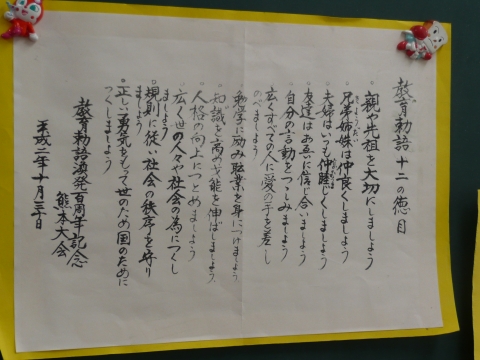 教育勅語十二の徳目
親や先祖を大切にしましょう
兄弟姉妹は仲良くしましょう
夫婦はいつも仲睦じくしましょう
友達はお互いに信じ合いましょう
自分の言動をつつしみましょう
広くすべての人に愛の手を差し
のべましょう
勉学に励み職業を身につけましょう
知識を高め才能を伸ばしましょう
人格の向上につとめましょう
広く世の人々や社会の為につくし
ましょう
規則に従い社会の秩序を守り
ましょう
正しい勇気をもって世のため国のために
つくしましょう
教育勅語渙発百周年記念
熊本大会
平成二年十月三十日